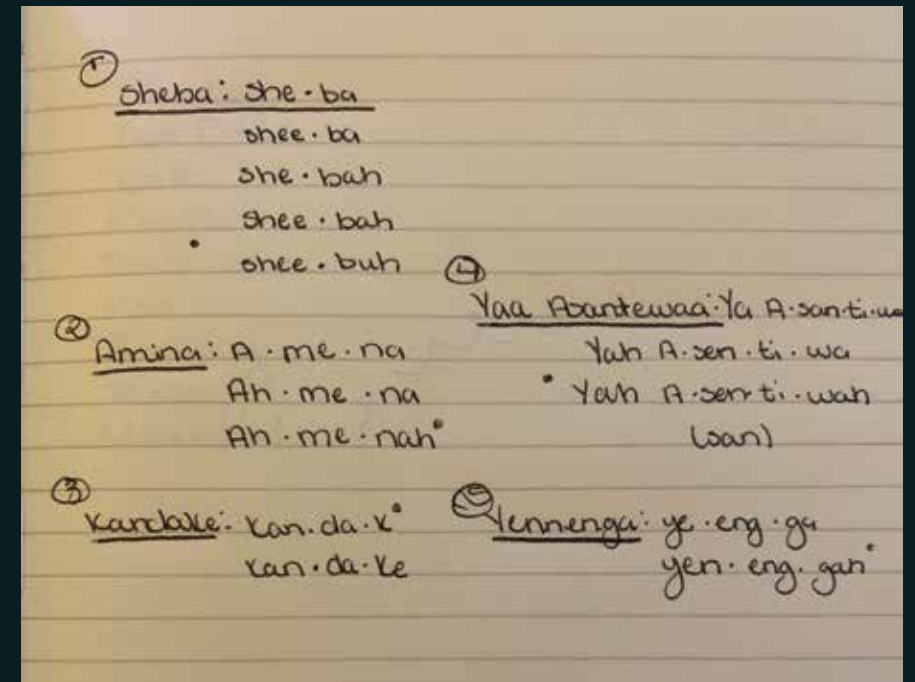 1
Sheba: she·ba
shee·ba
she·bah
shee·bah
• shee·buh
2
Amina: A·me·na
Ah·me·na
Ah·me·nah•
3
Kandake: Kan·da·k•
Kan·da·ke
4
Yaa Asantewaa: Ya A·san·ti·wa
Yah A·sen·ti·wa
• Yah A·sen·ti·wah
(san)
5
Yennenga: ye·eng·ga
yen·eng·gah•